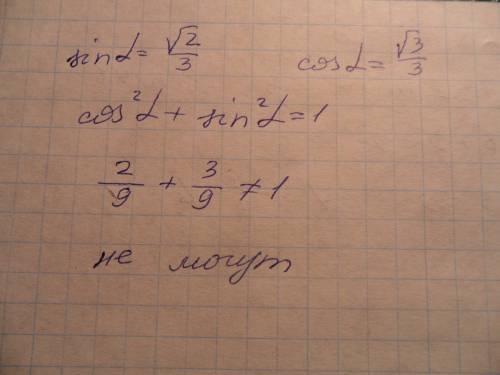 sin α = √2/3 cos α = √3/3
cos²α + sin²α = 1
2/9 + 3/9 ≠ 1
не могут